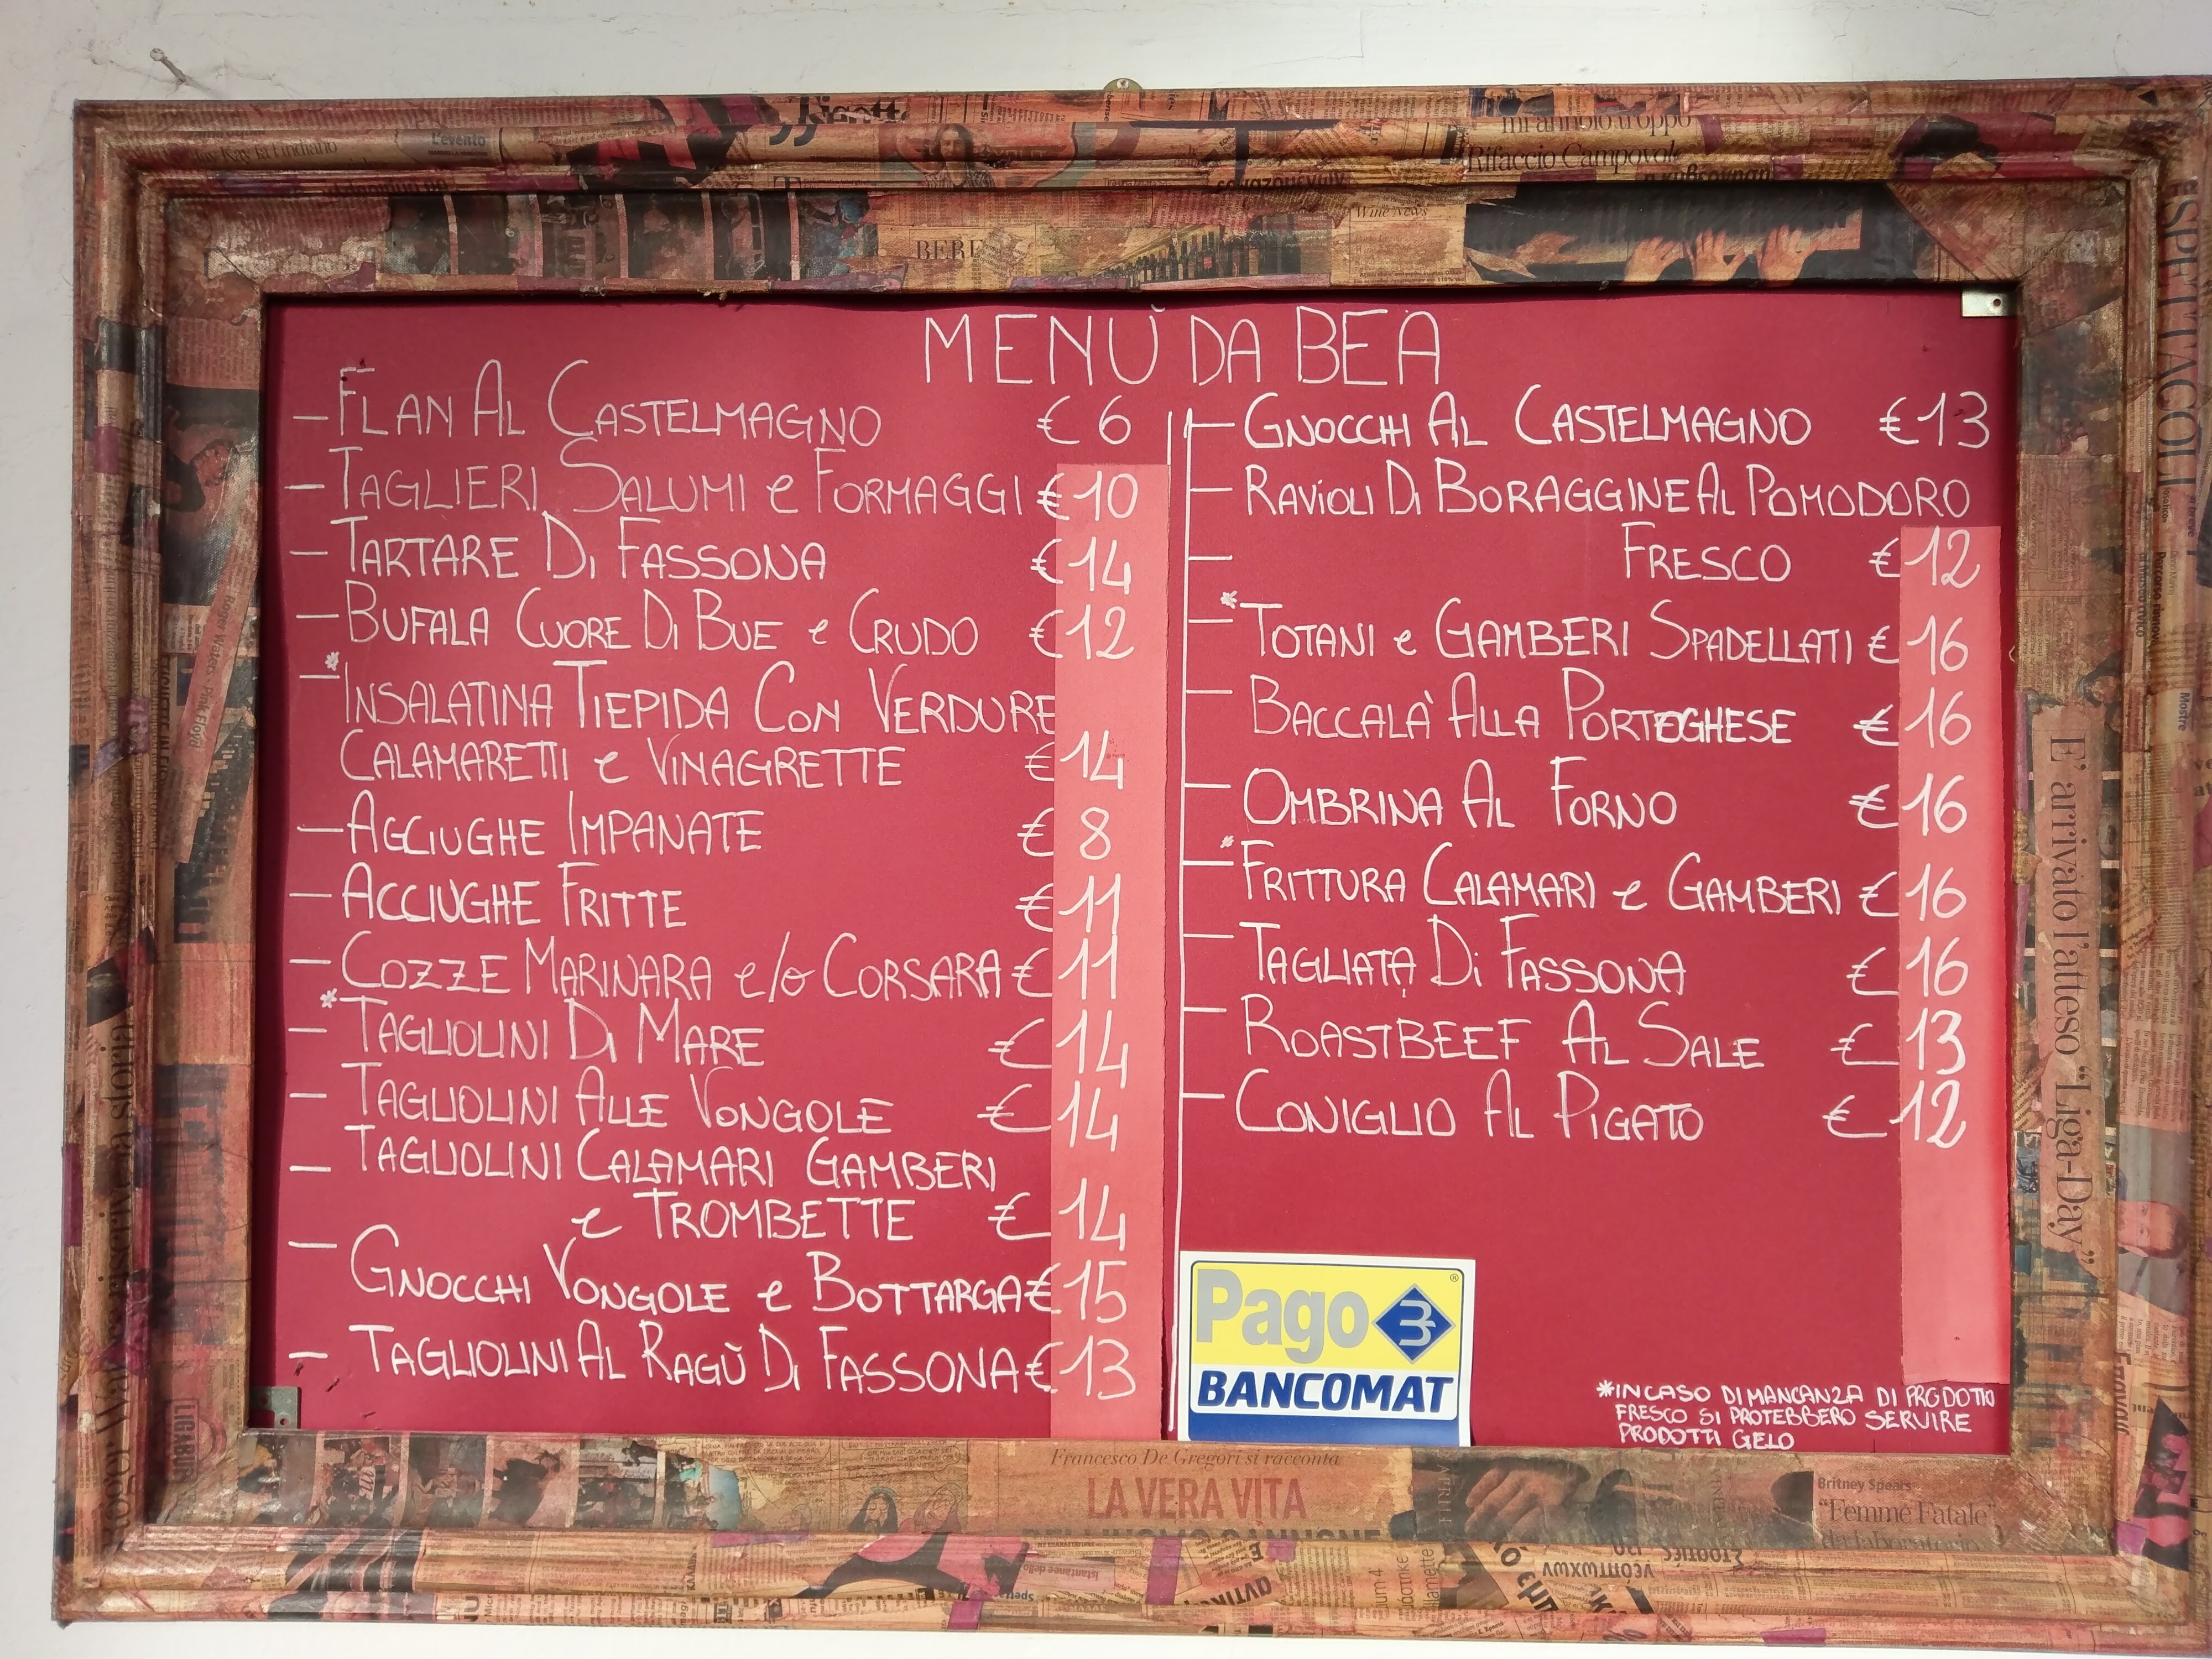 MENÙ DA BEA
– FLAN AL CASTELMAGNO € 6
– TAGLIERI SALUMI e FORMAGGI € 10
– TARTARE DI FASSONA € 14
– BUFALA CUORE DI BUE e CRUDO € 12
– *INSALATINA TIEPIDA CON VERDURE
CALAMARETTI e VINAGRETTE € 14
– ACCIUGHE IMPANATE € 8
– ACCIUGHE FRITTE € 11
– COZZE MARINARA e/o CORSARA € 11
– *TAGLIOLINI DI MARE € 14
– TAGLIOLINI ALLE VONGOLE € 14
– TAGLIOLINI CALAMARI GAMBERI
e TROMBETTE € 14
– GNOCCHI VONGOLE e BOTTARGA € 15
– TAGLIOLINI AL RAGÙ DI FASSONA € 13
– GNOCCHI AL CASTELMAGNO € 13
– RAVIOLI DI BORAGGINE AL POMODORO
– FRESCO € 12
– *TOTANI e GAMBERI SPADELLATI € 16
– BACCALÀ ALLA PORTOGHESE € 16
– OMBRINA AL FORNO € 16
– *FRITTURA CALAMARI e GAMBERI € 16
– TAGLIATA DI FASSONA € 16
– ROASTBEEF AL SALE € 13
– CONIGLIO AL PIGATO € 12
Pago
BANCOMAT
*IN CASO DI MANCANZA DI PRODOTTO
FRESCO SI PROTEBBERO SERVIRE
PRODOTTI GELO
L'evento
mi annoio troppo
Rifaccio Campovolo
BERE
Wine News
SPETTACOLI
E' arrivato l'atteso "Liga-Day"
Roger Waters Pink Floyd
Francesco De Gregori si racconta
LA VERA VITA
Britney Spears
"Femme Fatale"